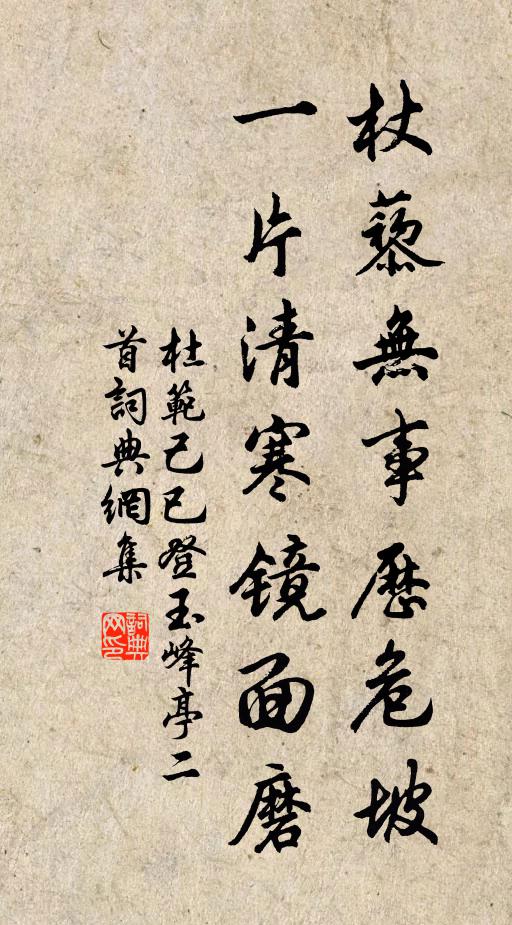 杖藜無事歷危坡
一片清寒镜面磨
杜範己巳登玉峰亭二
首詞典網集
詞典
网印